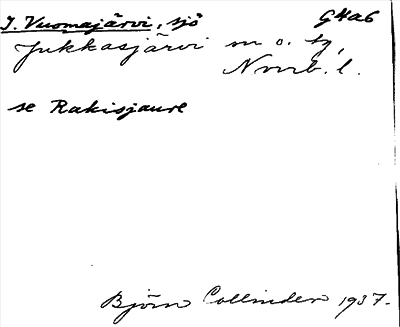 I. Vuomajärvi, sjö G4a6
Jukkasjärvi sn o. tg,
Norrb. l.
se Rakisjaure
Björn Collinder 1937.